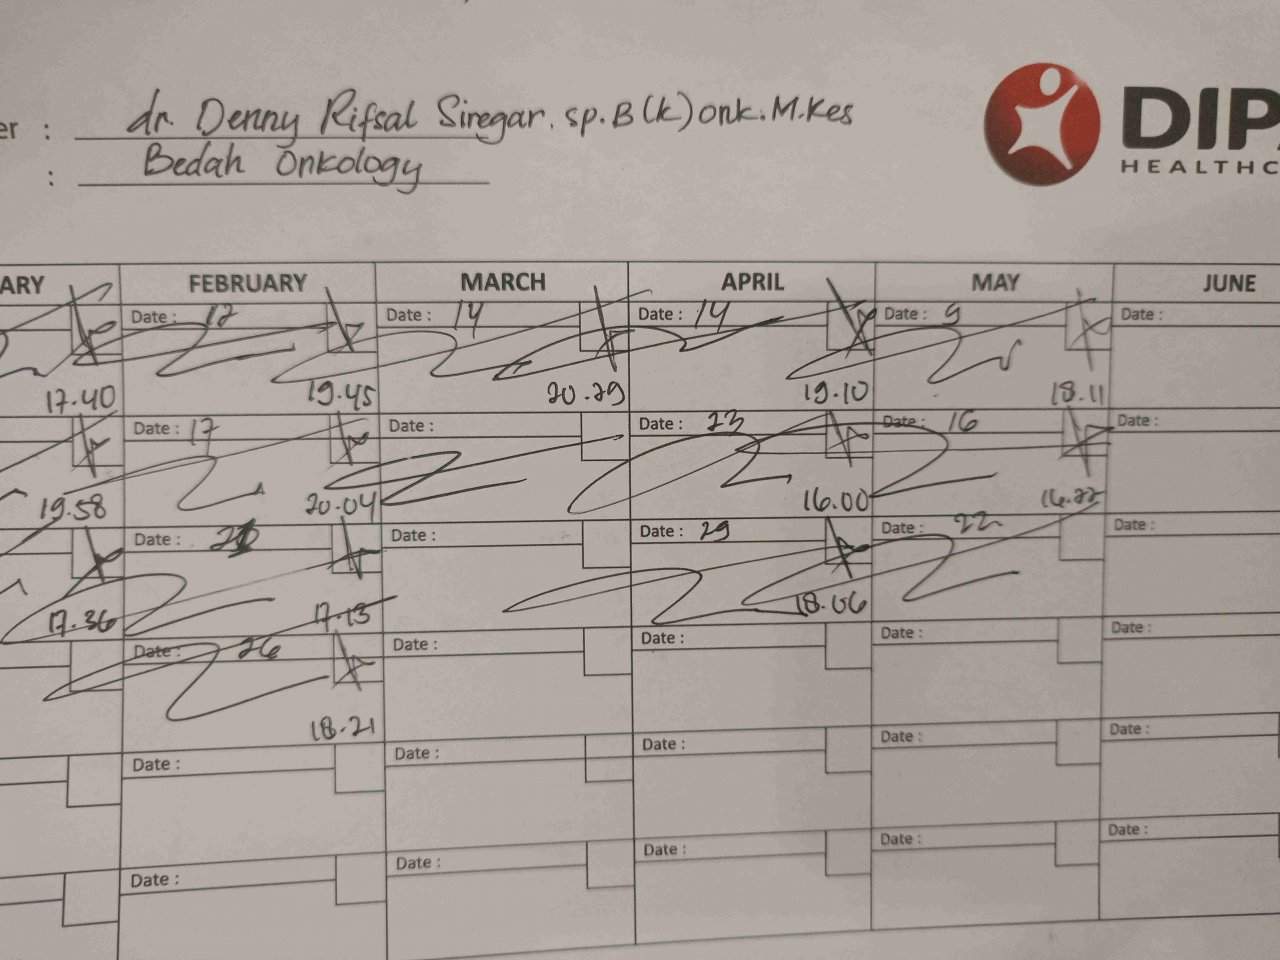 er : dr. Denny Rifsal Siregar. sp.B(k)onk.M.Kes
: Bedah Onkology
DIPA
HEALTHC
ARY FEBRUARY MARCH APRIL MAY JUNE
Date : 12 Date : 14 Date : 14 Date : 9 Date :
17.40 19.45 20.29 19.10 18.11
Date : 17 Date : Date : 23 Date : 16 Date :
19.58 20.04 16.00 16.22
Date : Date : Date : 29 Date : 22 Date :
17.36 17.13 18.06
Date : 26 Date : Date : Date : Date :
18.21
Date : Date : Date : Date : Date :
Date : Date : Date : Date : Date :